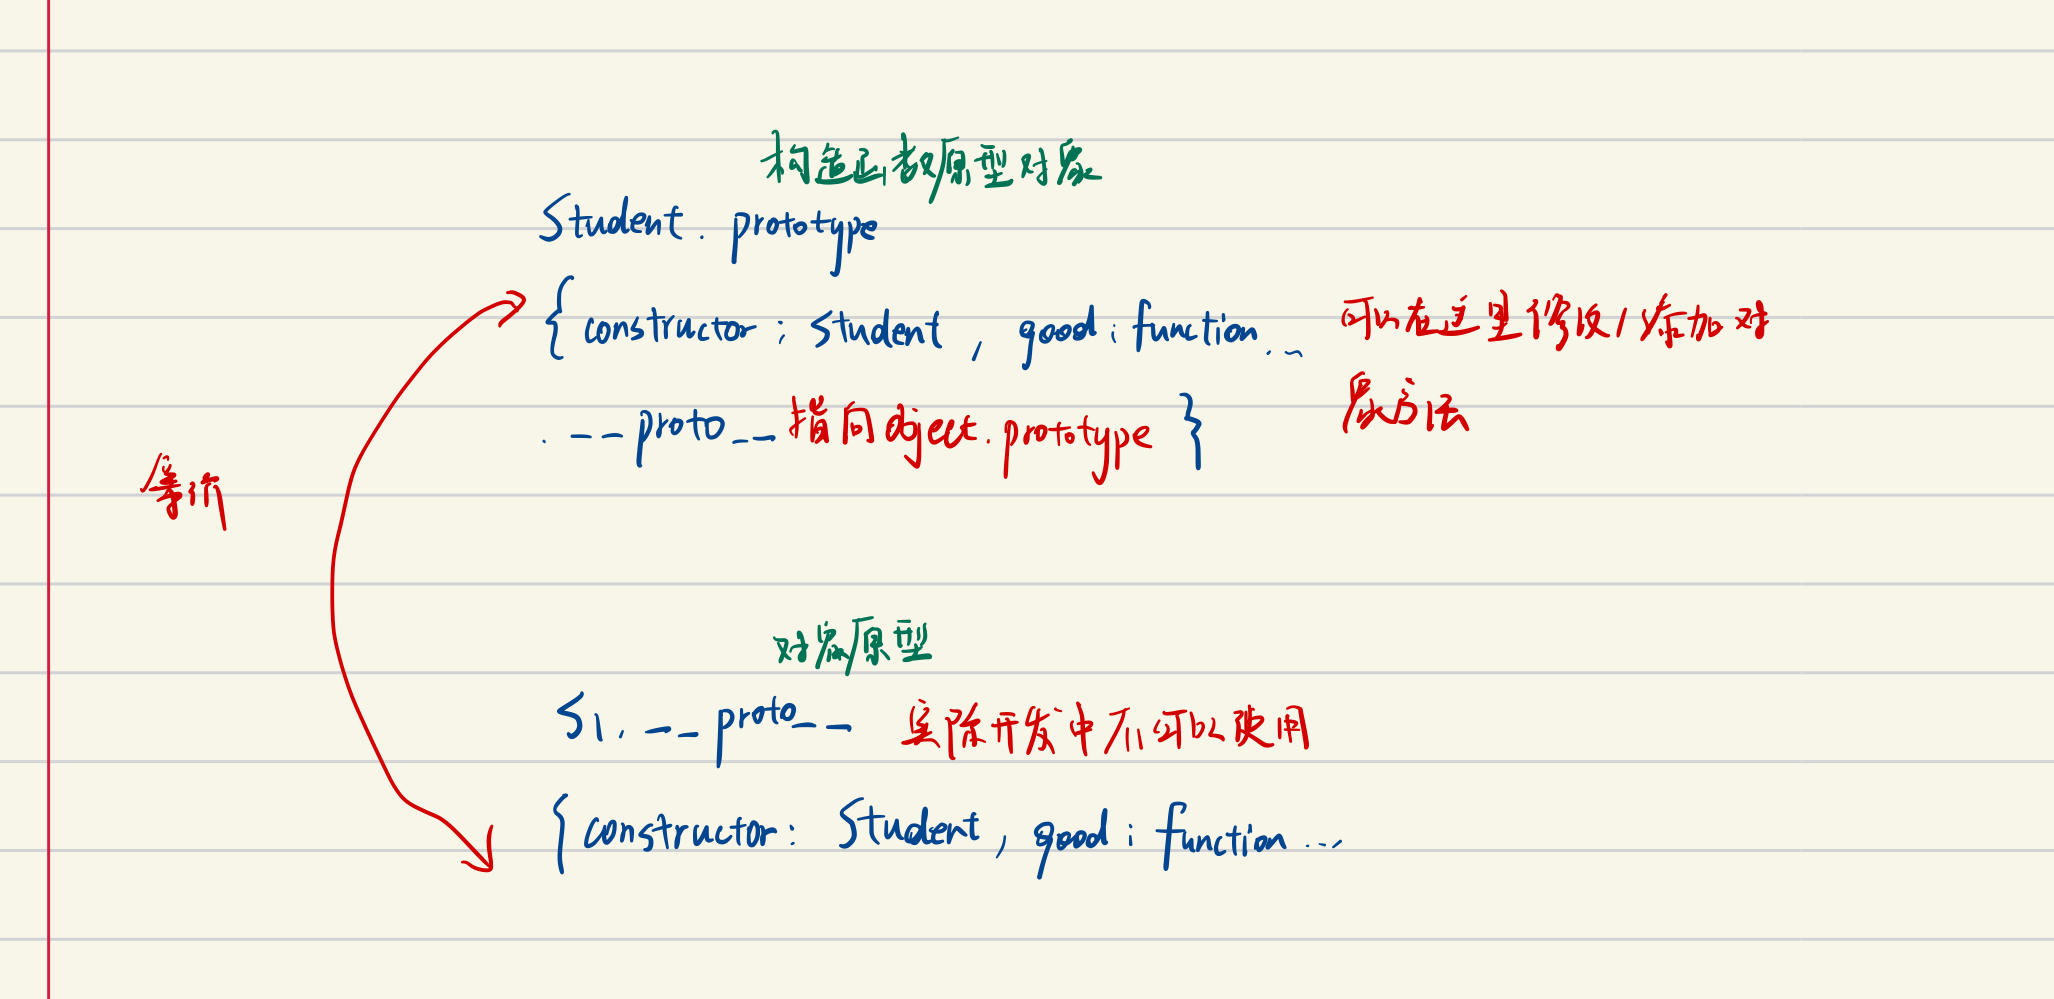 构造函数原型对象
Student. prototype
{ constructor: Student, good: function... 可以在这里修改/添加对
...__proto__指向object.prototype } 象方法
等价
对象原型
S1.__proto__ 实际开发中不可以使用
{ constructor: Student, good: function...